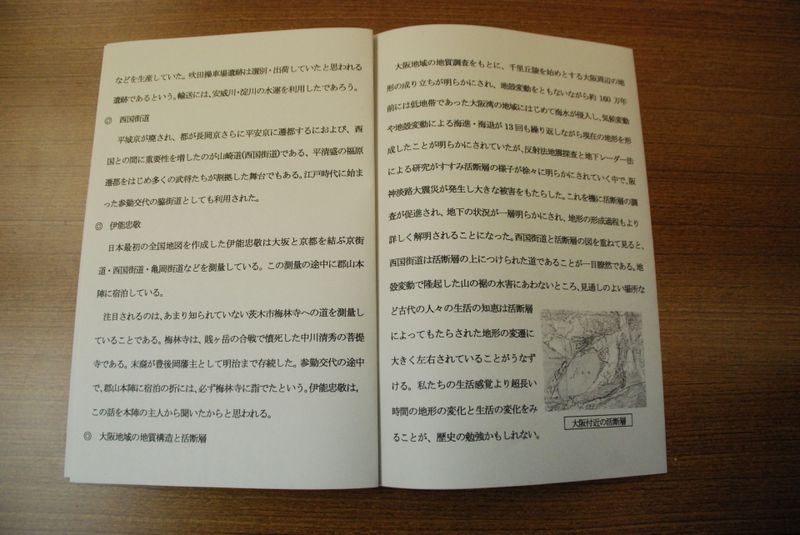 などを生産していた。吹田操車場遺跡は選別・出荷していたと思われる
遺跡であるという。輸送には、安威川・淀川の水運を利用したであろう。
◎ 西国街道
平城京が廃され、都が長岡京さらに平安京に遷都するにおよび、西
国との間に重要性を増したのが山崎道(西国街道)である、平清盛の福原
遷都をはじめ多くの武将たちが割拠した舞台でもある。江戸時代に始ま
った参勤交代の脇街道としても利用された。
◎ 伊能忠敬
日本最初の全国地図を作成した伊能忠敬は大坂と京都を結ぶ京街
道・西国街道・亀岡街道などを測量している。この測量の途中に郡山本
陣に宿泊している。
注目されるのは、あまり知られていない茨木市梅林寺への道を測量し
ていることである。梅林寺は、賤ヶ岳の合戦で憤死した中川清秀の菩提
寺である。末裔が豊後岡藩主として明治まで存続した。参勤交代の途中
で、郡山本陣に宿泊の折には、必ず梅林寺に詣でたという。伊能忠敬は、
この話を本陣の主人から聞いたからと思われる。
◎ 大阪地域の地質構造と活断層
大阪地域の地質調査をもとに、千里丘陵を始めとする大阪周辺の地
形の成り立ちが明らかにされ、地殻変動をともないながら約 160 万年
前には低地帯であった大阪湾の地域にはじめて海水が侵入し、気候変動
や地殻変動による海進・海退が 13 回も繰り返しながら現在の地形を形
成したことが明らかにされていたが、反射法地震探査と地下レーダー法
による研究がすすみ活断層の様子が徐々に明らかにされていく中で、阪
神淡路大震災が発生し大きな被害をもたらした。これを機に活断層の調
査が促進され、地下の状況が一層明らかにされ、地形の形成過程もより
詳しく解明されることになった。西国街道と活断層の図を重ねて見ると、
西国街道は活断層の上につけられた道であることが一目瞭然である。地
殻変動で隆起した山の裾の水害にあわないところ、見通しのよい場所な
ど古代の人々の生活の知恵は活断層
によってもたらされた地形の変遷に
大きく左右されていることがうなず
ける。私たちの生活感覚より超長い
時間の地形の変化と生活の変化をみ
ることが、歴史の勉強かもしれない。
大阪付近の活断層